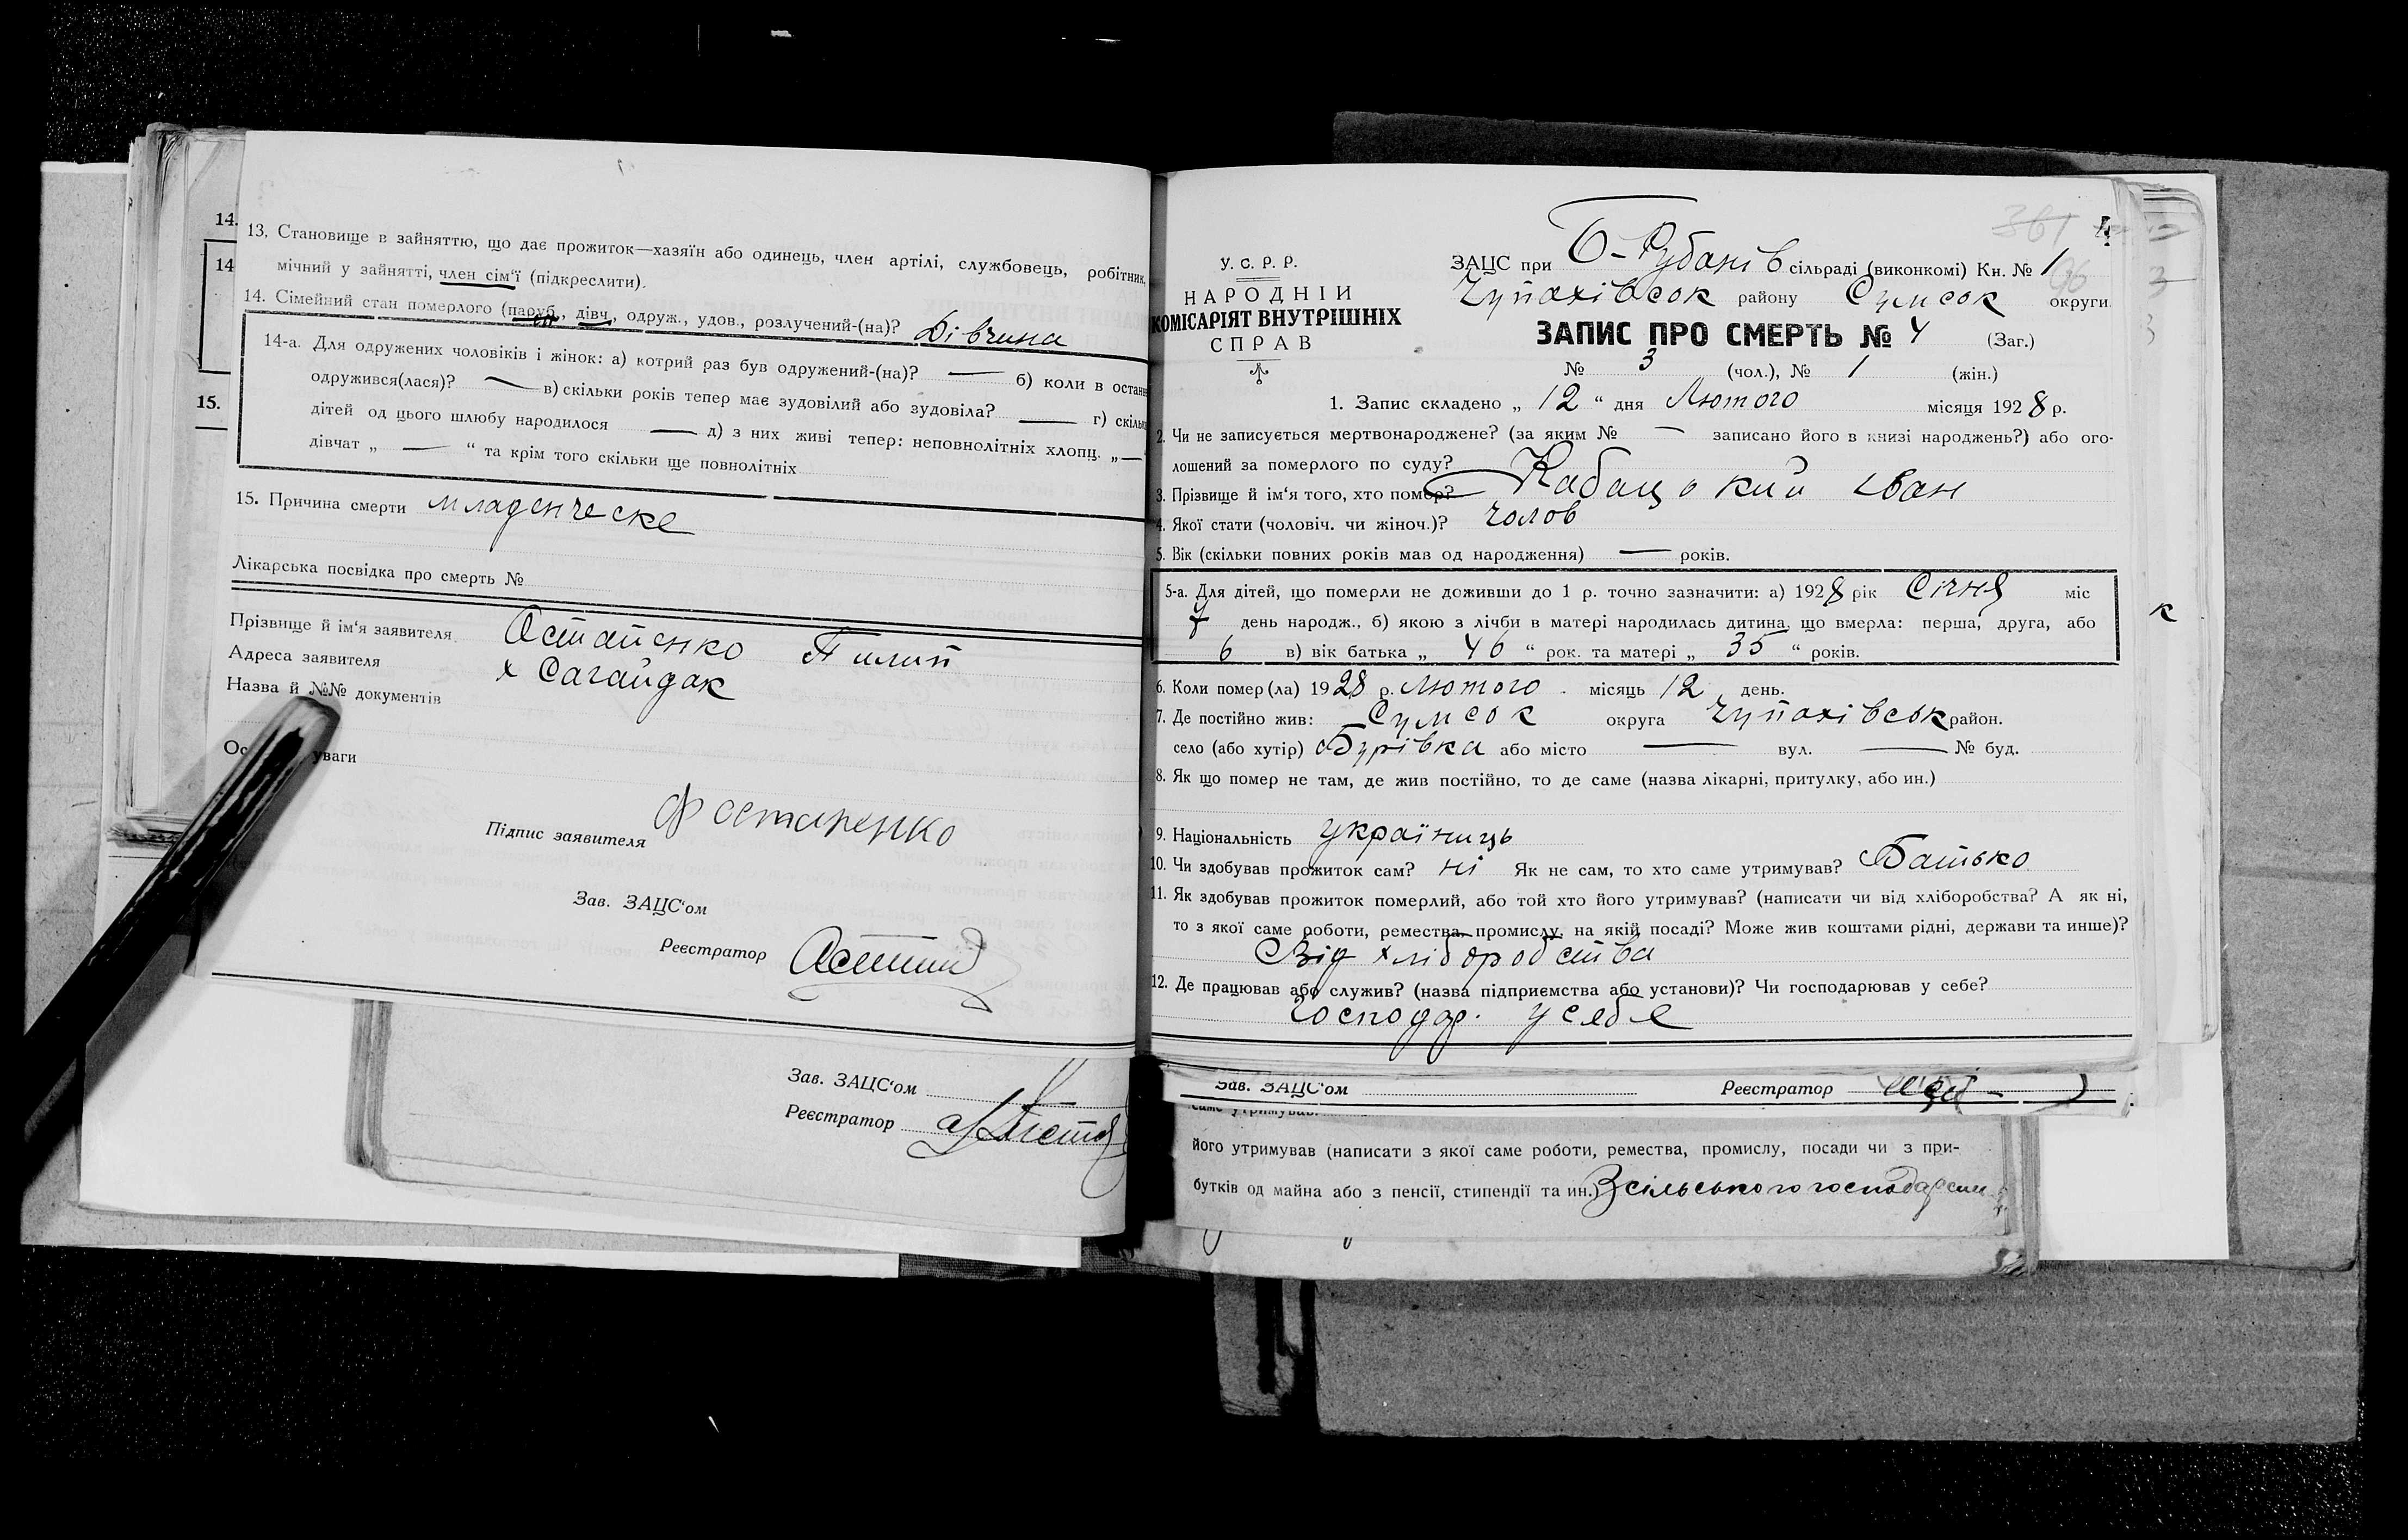 14.
13. Становище в зайняттю, що дає прожиток—хазяїн або одинець, член артілі, службовець, робітник,
14
мічний у зайнятті, член сім'ї (підкреслити).
14. Сімейний стан померлого (паруб., дівч., одруж., удов., розлучений-(на)? Дівчина
14-а. Для одружених чоловіків і жінок: а) котрий раз був одружений-(на)? — б) коли в останн
одружився(лася)? — в) скільки років тепер має зудовілий або зудовіла? — г) скільк
15.
дітей од цього шлюбу народилося — д) з них живі тепер: неповнолітніх хлопц. „—
дівчат „ — “ та крім того скільки ще повнолітніх
15. Причина смерти младенческе
Лікарська посвідка про смерть №
Прізвище й ім'я заявителя Остапенко Пилип
Адреса заявителя х Сагайдак
Назва й №№ документів
Ос уваги
Підпис заявителя
Зав. ЗАЦС'ом
Реєстратор
Зав. ЗАЦС'ом
Реєстратор
361
У. С. Р. Р.
НАРОДНІЙ
КОМІСАРІЯТ ВНУТРІШНІХ
СПРАВ
ЗАЦС при Б-Рубанів сільраді (виконкомі) Кн. № 1
Чупахівсок району Сумсок округи
ЗАПИС ПРО СМЕРТЬ № 4 (Заг.)
№ 3 (чол.), № 1 (жін.)
1. Запис складено „ 12 “ дня Лютого місяця 1928 р.
2. Чи не записується мертвонароджене? (за яким № — записано його в книзі народжень?) або ого-
лошений за померлого по суду?
3. Прізвище й ім'я того, хто помер? Кабацокий Іван
4. Якої стати (чоловіч. чи жіноч.)? чолов
5. Вік (скільки повних років мав од народження) — років.
5-а. Для дітей, що померли не доживши до 1 р. точно зазначити: а) 1928 рік Січня міс
7 день народж., б) якою з лічби в матері народилась дитина, що вмерла: перша, друга, або
6 в) вік батька „ 46 “ рок. та матері „ 35 “ років.
к
6. Коли помер(ла) 1928 р. Лютого місяць 12 день.
7. Де постійно жив: Сумсок округа Чупахівськ район.
село (або хутір) Бурівка або місто — вул. — № буд.
8. Як що помер не там, де жив постійно, то де саме (назва лікарні, притулку, або ин.)
9. Національність українць
10. Чи здобував прожиток сам? ні Як не сам, то хто саме утримував? Батько
11. Як здобував прожиток померлий, або той хто його утримував? (написати чи від хліборобства? А як ні,
то з якої саме роботи, ремества, промислу, на якій посаді? Може жив коштами рідні, держави та инше)?
Від хліборобства
12. Де працював або служив? (назва підприємства або установи)? Чи господарював у себе?
Господар. у себе
Зав. ЗАЦС'ом Реєстратор
саме утримував.
його утримував (написати з якої саме роботи, ремества, промислу, посади чи з при-
бутків од майна або з пенсії, стипендії та ин.) Зсільського господарств